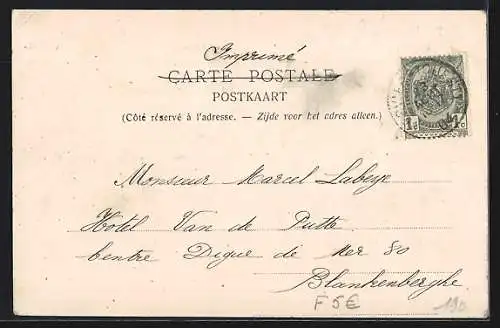 Imprimé
CARTE POSTALE
POSTKAART
(Côté réservé à l'adresse. — Zijde voor het adres alleen.)
1c 1c
Monsieur Marcel Labeye
Hotel Van de Putte
Centre Digue de Mer 80
Blankenberghe
F 5€
190